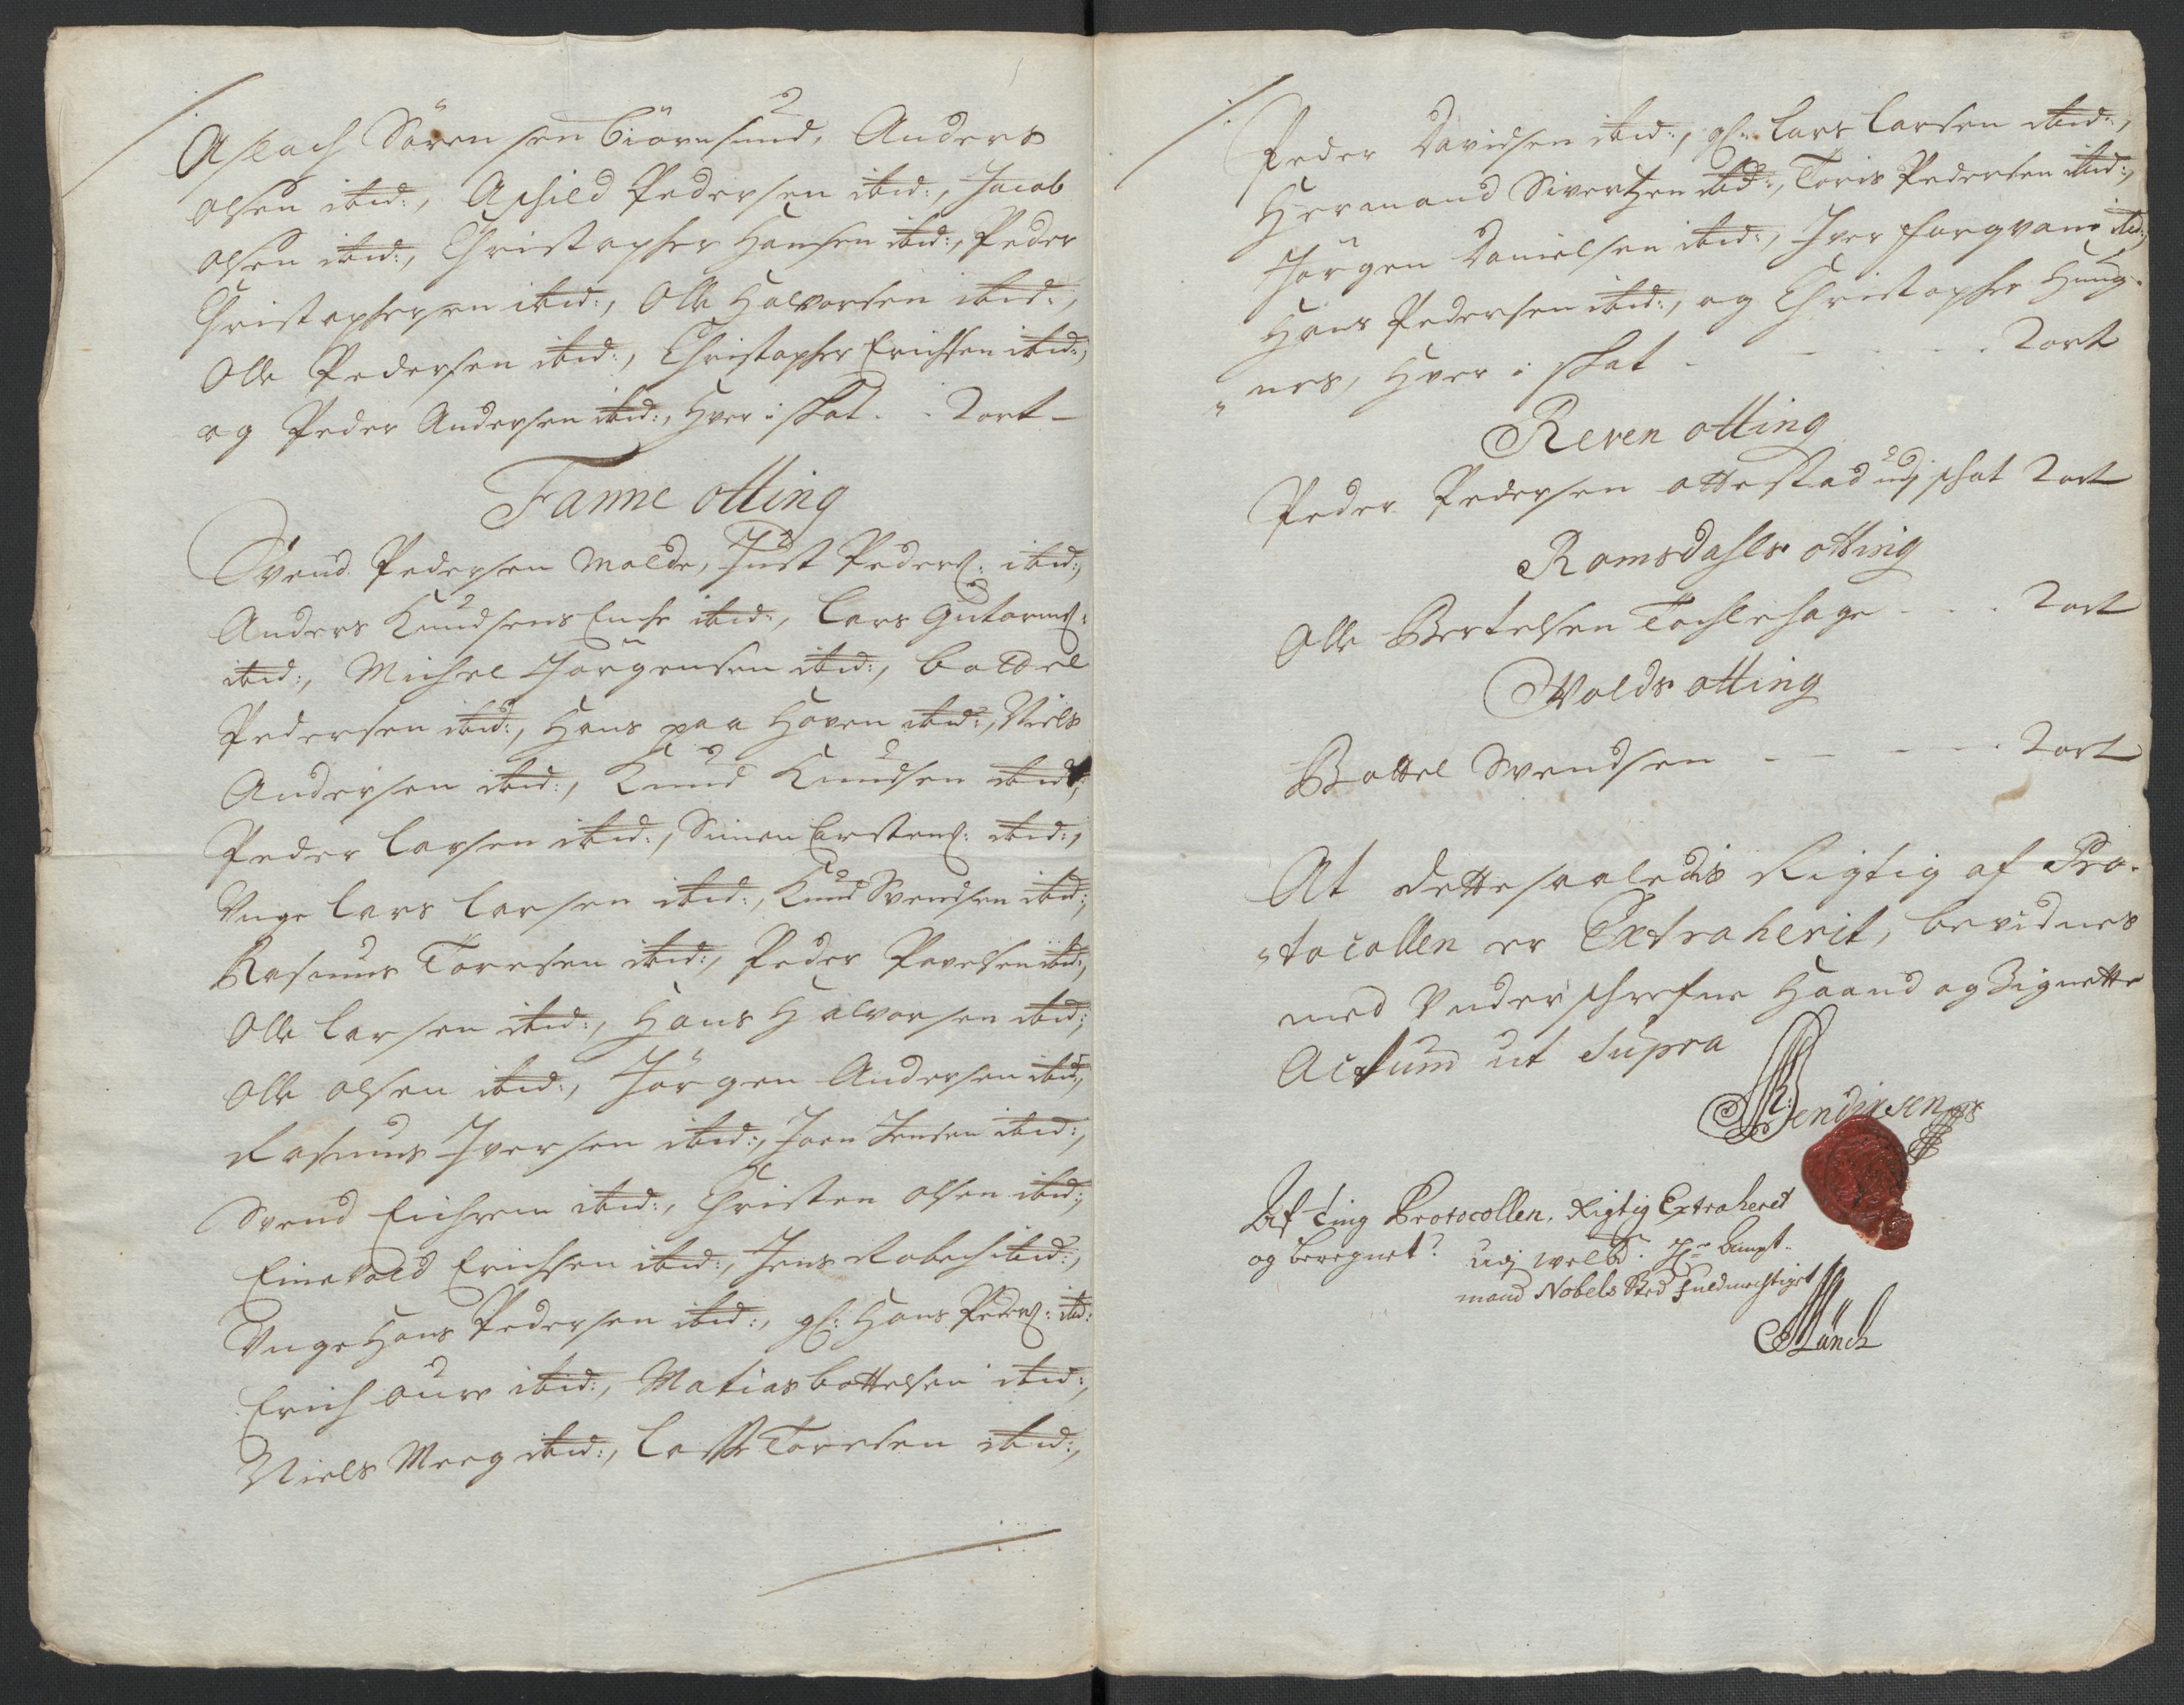 Aslach Sörensen Biörnsund, Anders
olsen ibid:, Aschild Pedersen ibid:, Jacob
olsen ibid:, Christopher Hansen ibid:, Peder
Christophersen ibid:, Olle Halvorsen ibid:,
Olle Pedersen ibid:, Christopher Erichsen ibid:,
og Peder Andersen ibid:, Hver i skat - - 2 ort -
Fanne otting
Svend Pedersen Molde, Just Peders: ibid:,
Anders Knudsens Enche ibid:, Lars Gutorms:
ibid:, Michel Jörgensen ibid:, Bottel
Pedersen ibid:, Hans paa Haven ibid:, Niels
Andersen ibid:, Knud Knudsen ibid:,
Peder Larsen ibid:, Simen Carstens: ibid:,
Unge Lars Larsen ibid:, Knud Svendsen ibid:,
Rasmus Toresen ibid:, Peder Povelsen ibid:,
Olle Larsen ibid:, Hans Halvorsen ibid:,
Olle olsen ibid:, Jörgen Andersen ibid:,
Rasmus Iversen ibid:, Joen Jensen ibid:,
Svend Eichrem ibid:, Christen olsen ibid:,
Einevold Erichsen ibid:, Jens Robech ibid:,
Unge Hans Pedersen ibid:, gl: Hans Peders: ibid:
Erich Aure ibid:, Matias Bottelsen ibid:,
Niels Meeg ibid:, Lasse Toresen ibid:,
Peder Davidsen ibid:, gl: Lars Larsen ibid:,
Hermand Sivertzen ibid:, Toris Pedersen ibid:,
Jörgen Danielsen ibid:, Iver ibid:,
Hans Pedersen ibid:, og Christopher Hung-
nes, Hver i skat - - - - 2 ort
Reven otting
Peder Pedersen ottestad udj schat 2 ort
Romsdahls otting
Olle Bertelsen Tochlehage - - - 2 ort
Wolds otting
Bottel Svendsen - - - - 2 ort
At dette saaledis Rigtig af Pro-
tocollen er Extraherit, bevidnes
med Underschrefne Haand og Zignette
Actum ut supra
Hendrichsen
Af ting Protocollen. Rigtig Extraheret
og beregnet? udj welbr. Hr. Ampt-
mand Nobels Sted Fuldmechtiget
Münch